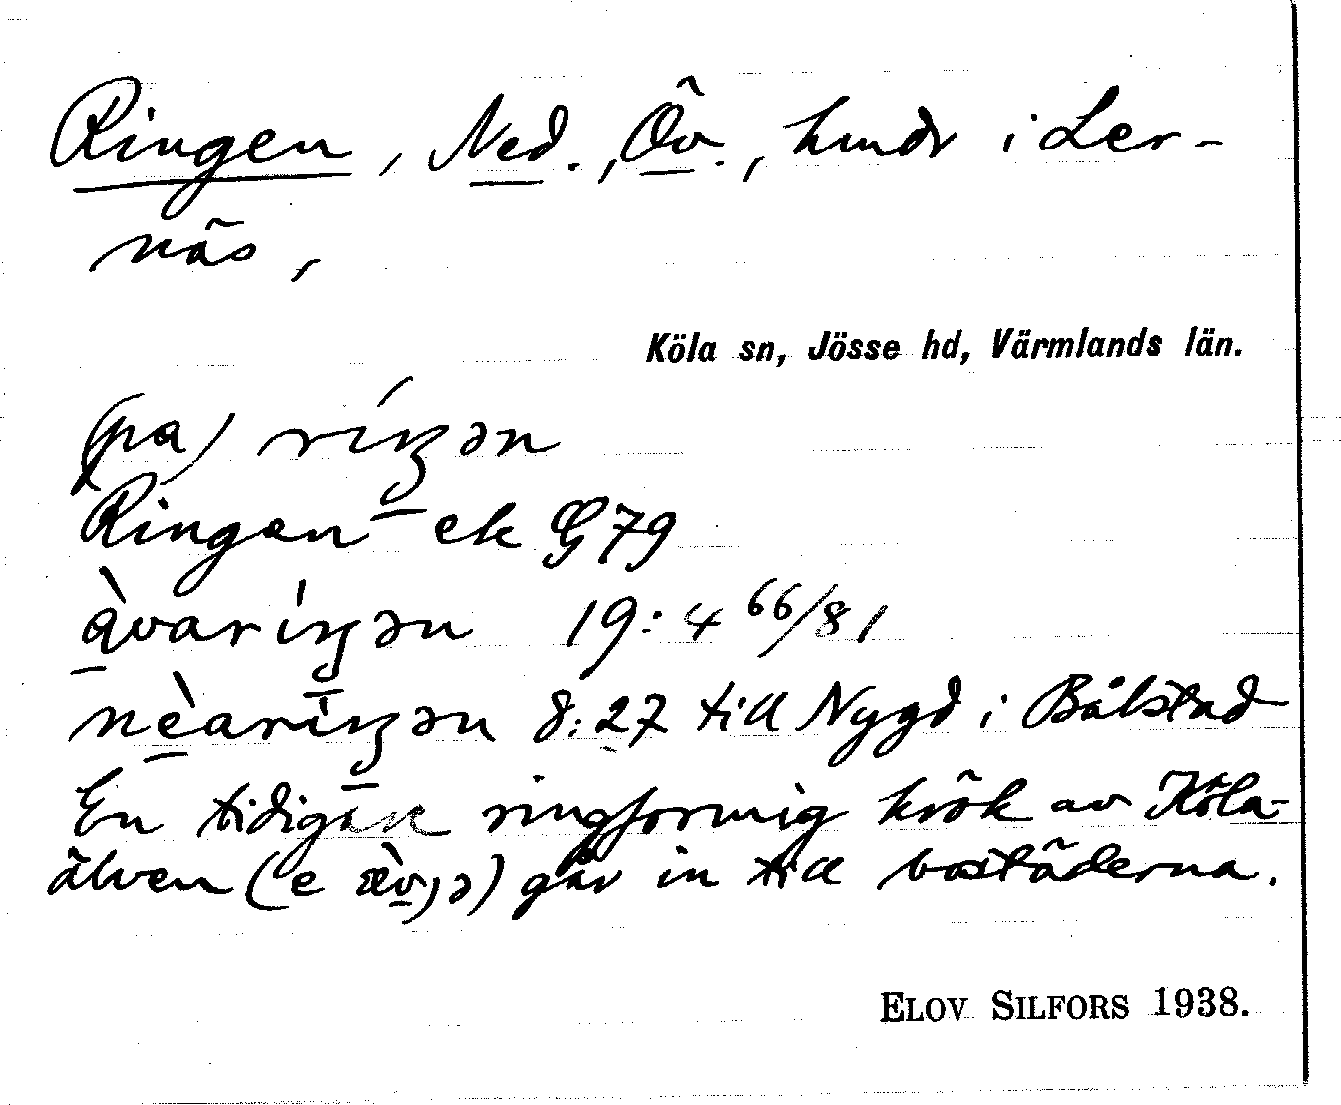 Ringen, Ned., Öv., hmdr i Ler-
näs,
Köla sn, Jösse hd, Värmlands län.
(pa) ríŋən
Ringen ek G 79
àvaríŋən 19:4 66/81
nèaríŋən 8:27 till Nygd i Bålstad
En tidigare ringformig krök av Köla-
älven (e) går in till bostäderna.
ELOV SILFORS 1938.